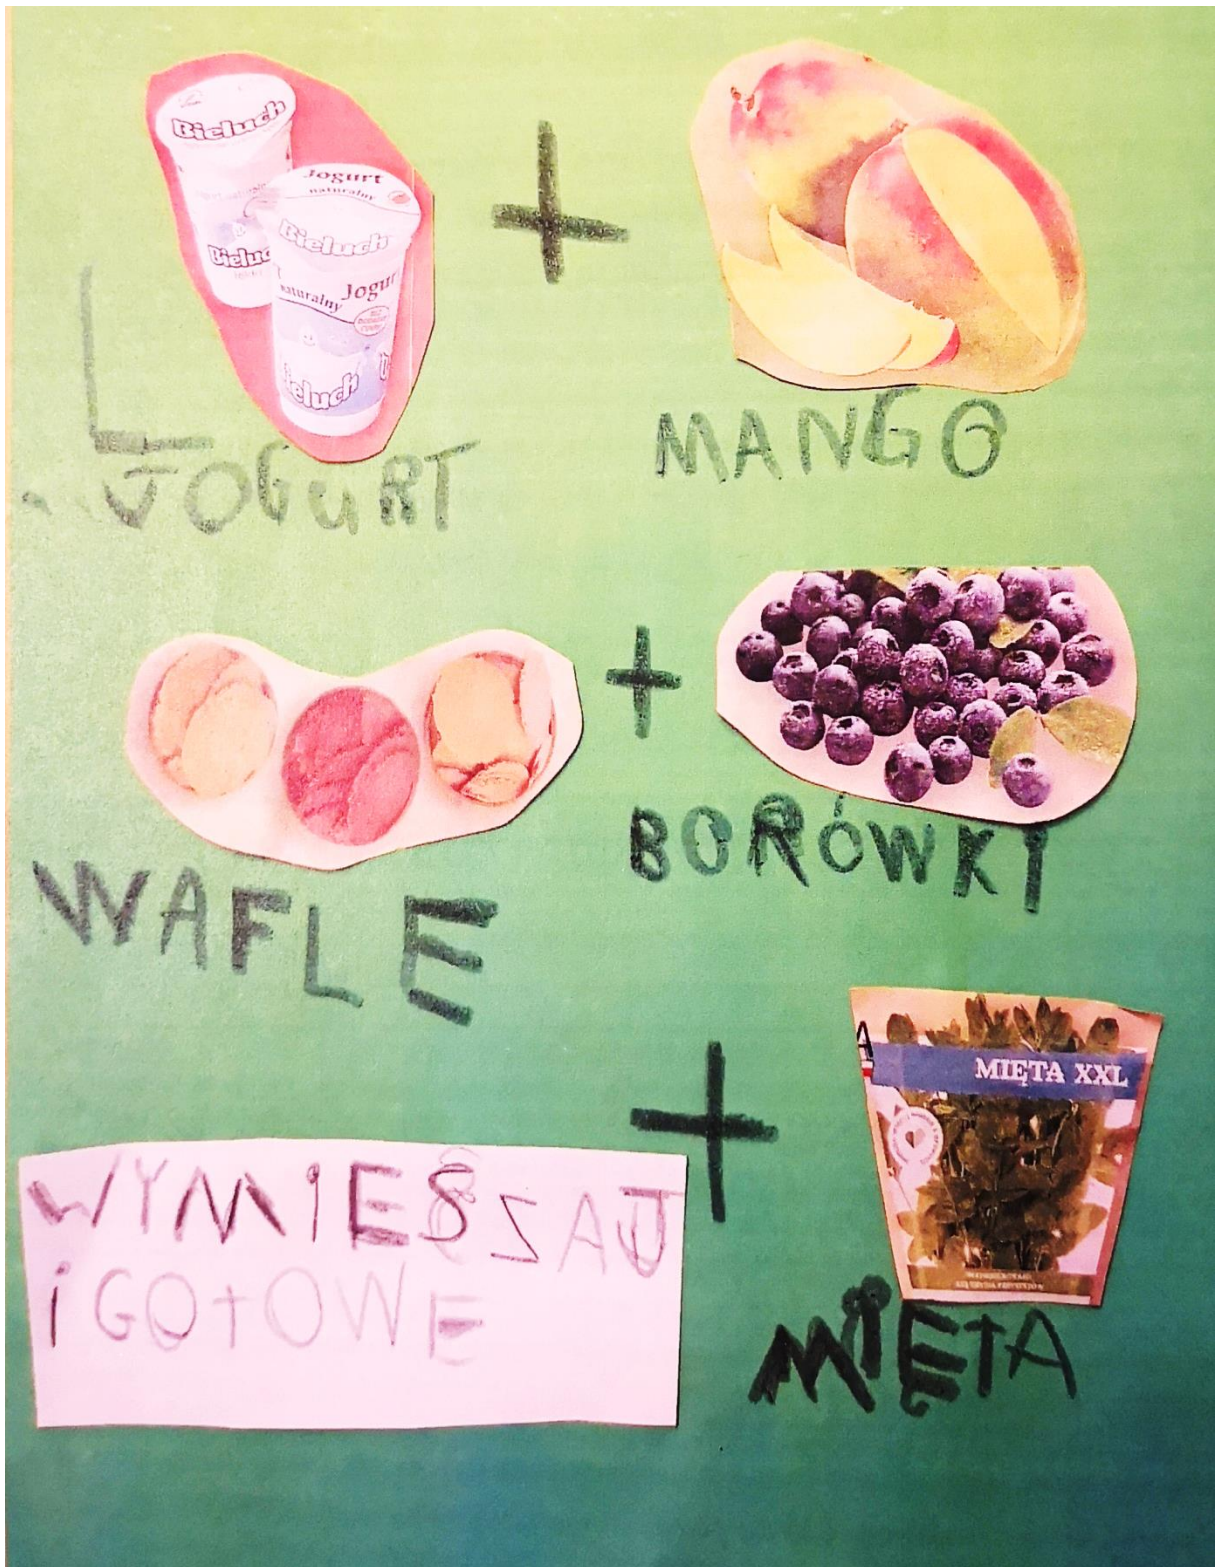 Bieluch
Jogurt
naturalny
Bieluch
Bieluch
Jogur
naturalny
ieluch
+
JOGURT
MANGO
+
WAFLE
BORÓWKI
+
MIĘTA XXL
MIĘTA
WYMIESZAJ
i GOTOWE